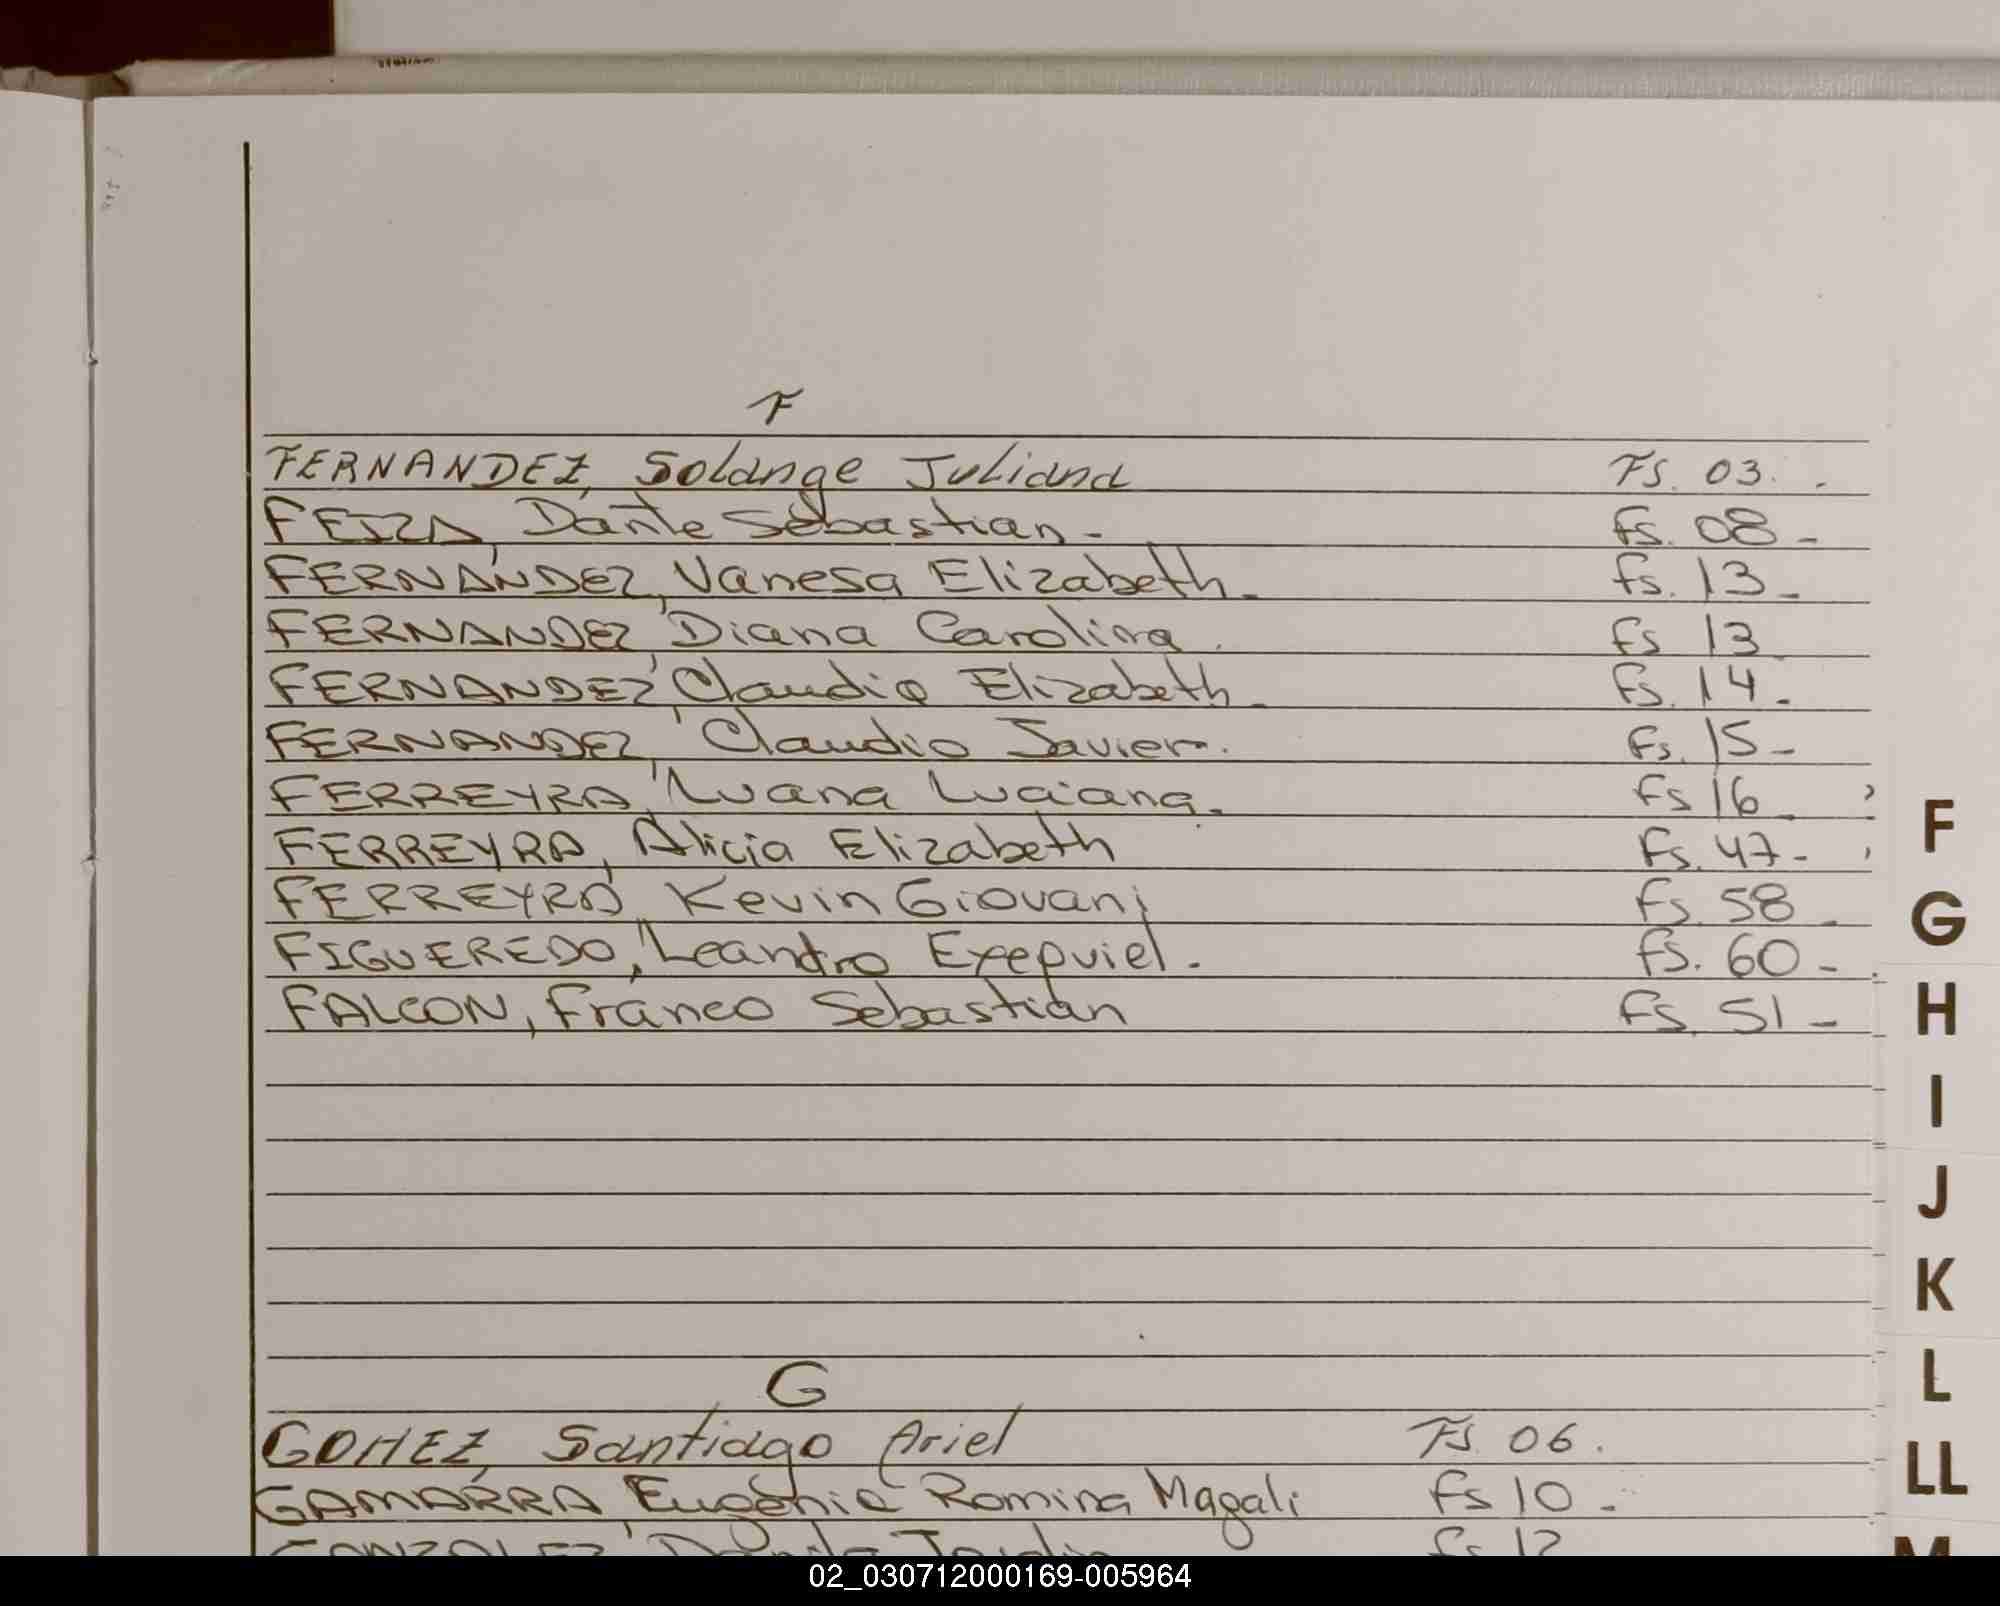 F
FERNANDEZ, Solange Juliana Fs. 03.
FEIZA, Dante Sebastian- fs. 08-
FERNANDEZ, Vanesa Elizabeth- fs. 13-
FERNANDEZ, Diana Carolina. fs 13
FERNANDEZ, Claudia Elizabeth- fs. 14-
FERNANDEZ, Claudio Javier. fs. 15-
FERREYRA, Luana Luciana- fs 16
F
FERREYRA, Alicia Elizabeth fs. 47-
FERREYRA, Kevin Giovani fs. 58-
G
FIGUEREDO, Leandro Exequiel. fs. 60-
FALCON, Franco Sebastian fs. 51-
H
I
J
K
G
L
GOMEZ, Santiago Ariel Fs. 06.
LL
GAMARRA, Eugenia Romina Magali fs 10-
GONZALEZ fs 12
M
02_030712000169-005964